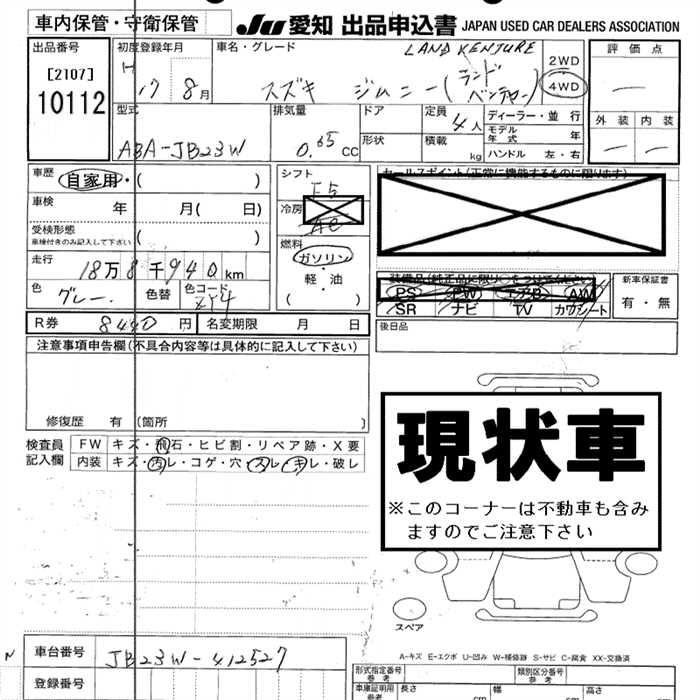 車内保管・守衛保管
JU 愛知 出品申込書 JAPAN USED CAR DEALERS ASSOCIATION
出品番号
[2107]
10112
初度登録年月
H
17 8月
車名・グレード
LAND VENTURE
スズキ ジムニー(ランドベンチャー)
2WD
4WD
評価点
外装 内装
型式
ABA-JB23W
排気量
0.65 CC
ドア
形状
定員
4人
積載
kg
ディーラー・並行
モデル年式 年
ハンドル 左・右
車歴
自家用・( )
車検 年 月( 日)
受検形態
車検付きのみ記入して下さい ( )
走行
18万8千940km
色
グレー
色替
色コード
Z54
シフト
F5
冷房
AC
燃料
ガソリン
軽・油
( )
セールスポイント(正常に機能するものに限ります)
PS PW エアB AW
SR ナビ TV カワシート
新車保証書
有・無
後日品
R券 8440円 名変期限 月 日
注意事項申告欄(不具合内容等は具体的に記入して下さい)
修復歴 有(箇所 )
検査員記入欄
FW キズ・飛石・ヒビ割・リペア跡・X要
内装 キズ・汚レ・コゲ・穴・スレ・キレ・破レ
現状車
※このコーナーは不動車も含み
ますのでご注意下さい
スペア
A-キズ E-エクボ U-凹み W-補修跡 S-サビ C-腐食 XX-交換済
N
車台番号 JB23W-412527
登録番号
形式指定番号
参考
類別区分番号
参考
車庫証明用
参考
長さ
cm
幅
cm
高